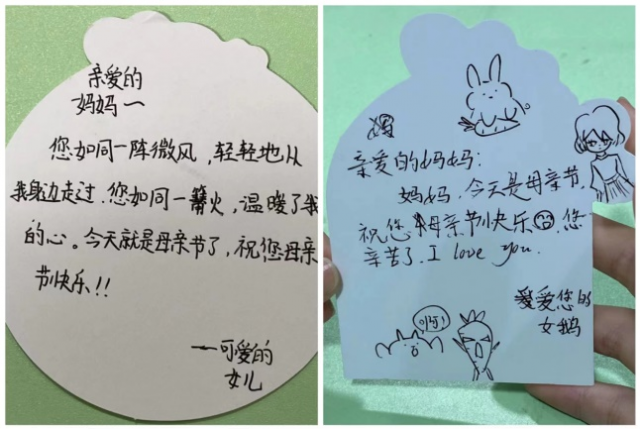 亲爱的
妈妈～
您如同一阵微风，轻轻地从
我身边走过.您如同一篝火，温暖了我
的心。今天就是母亲节了，祝您母亲
节快乐!!
—可爱的
女儿
亲爱的妈妈:
妈妈.今天是母亲节.
祝您母亲节快乐.您
辛苦了.I love you.
爱您的
女鹅
啊!